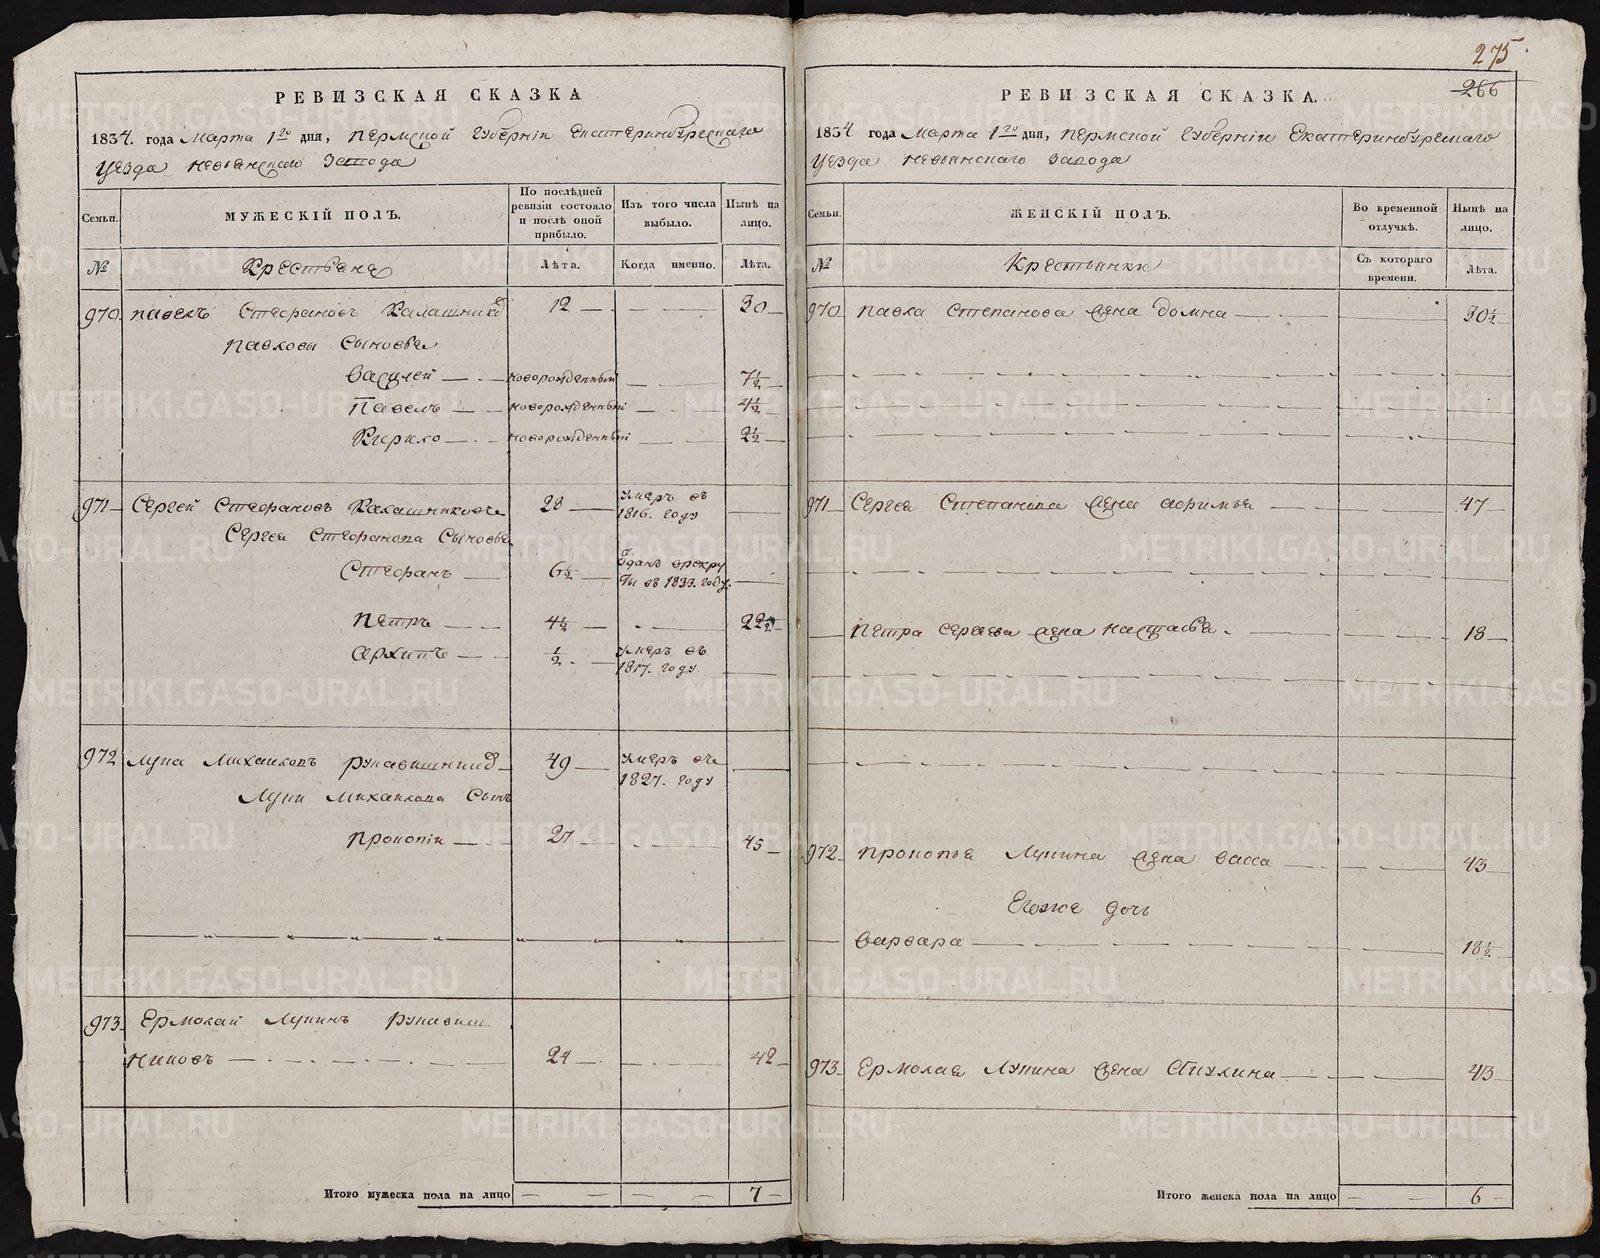 275
266
РЕВИЗСКАЯ СКАЗКА
1834. года Марта 1го дня, Пермской Губернiи Екатеринбурскаго
Уезда Невьянскаго Завода
Семьи.
МУЖЕСКIЙ ПОЛЪ.
По послѣдней ревизiи состояло и послѣ оной прибыло.
Изъ того числа выбыло.
Нынѣ на лицо.
№
Крестьяне
Лѣта.
Когда именно.
Лѣта.
970 Павелъ Стефановъ Калашников 12 — — 30
Павловы Сыновья
Василей — новорожденный — 7 1/2
Павелъ — новорожденный — 4 1/2
Кирило — новорожденный — 2 1/2
971 Сергей Стефановъ Калашниковъ 28 — Умеръ въ 1816. году
Сергея Стефанова Сыновья
Стефанъ — 6 1/2 — Отданъ врекруты въ 1833. году
Петръ — 4 1/2 — 22 1/2
Архипъ — 1/2 — Умеръ въ 1817. году
972 Лупа Михайловъ Рукавишников 49 — Умеръ въ 1827. году
Лупы Михайлова Сынъ
Прокопiй — 27 — 45
973 Ермолай Лупинъ Рукавиш
никовъ — 24 — 42
Итого мужеска пола на лицо — — 7
РЕВИЗСКАЯ СКАЗКА.
1834 года Марта 1го дня, Пермской Губернiи Екатеринбурскаго
Уезда Невьянскаго Завода
Семьи.
ЖЕНСКIЙ ПОЛЪ.
Во временной отлучкѣ.
Нынѣ на лицо.
№
Крестьянки
Съ котораго времени.
Лѣта.
970 Павла Степанова жена Домна — 30 1/2
971 Сергея Степанова жена Афимья — 47
Петра Сергеева жена Настасья — 18
972 Прокопья Лупина жена Васса — 43
Егоже дочь
Варвара — 18 1/2
973 Ермолая Лупина жена Акулина — 43
Итого женска пола на лицо — — 6
METRIKI.GASO-URAL.RU